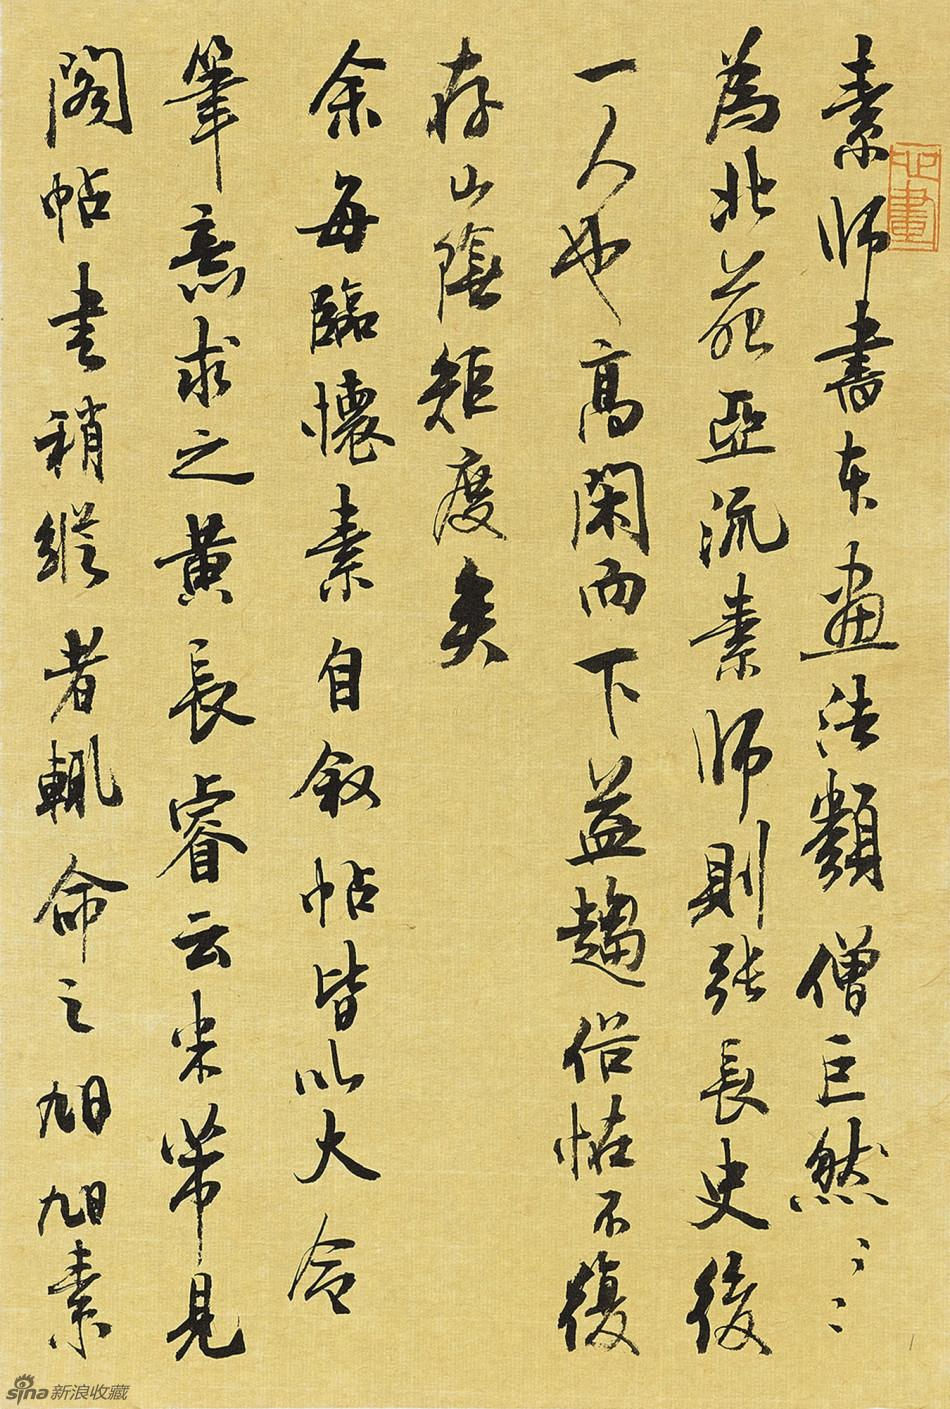 素師書本畫法類僧巨然〻〻
為北苑亞流素師則張長史後
一人也高閑而下益趨俗怪不復
存山陰矩度矣
余每臨懷素自叙帖皆以大令
筆意求之黃長睿云米芾見
閣帖書稍縱者輒命之旭旭素
sina新浪收藏